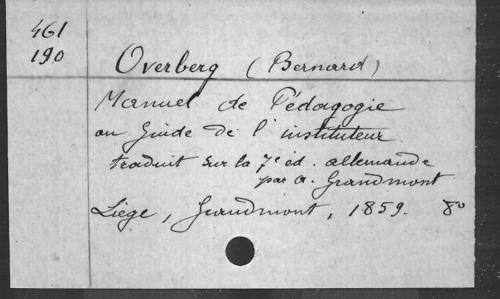 461
190
Overberg (Bernard)
Manuel de Pédagogie
ou Guide de l'instituteur
traduit sur la 7e éd. allemande
par A. Grandmont
Liège, Grandmont, 1859. 8o